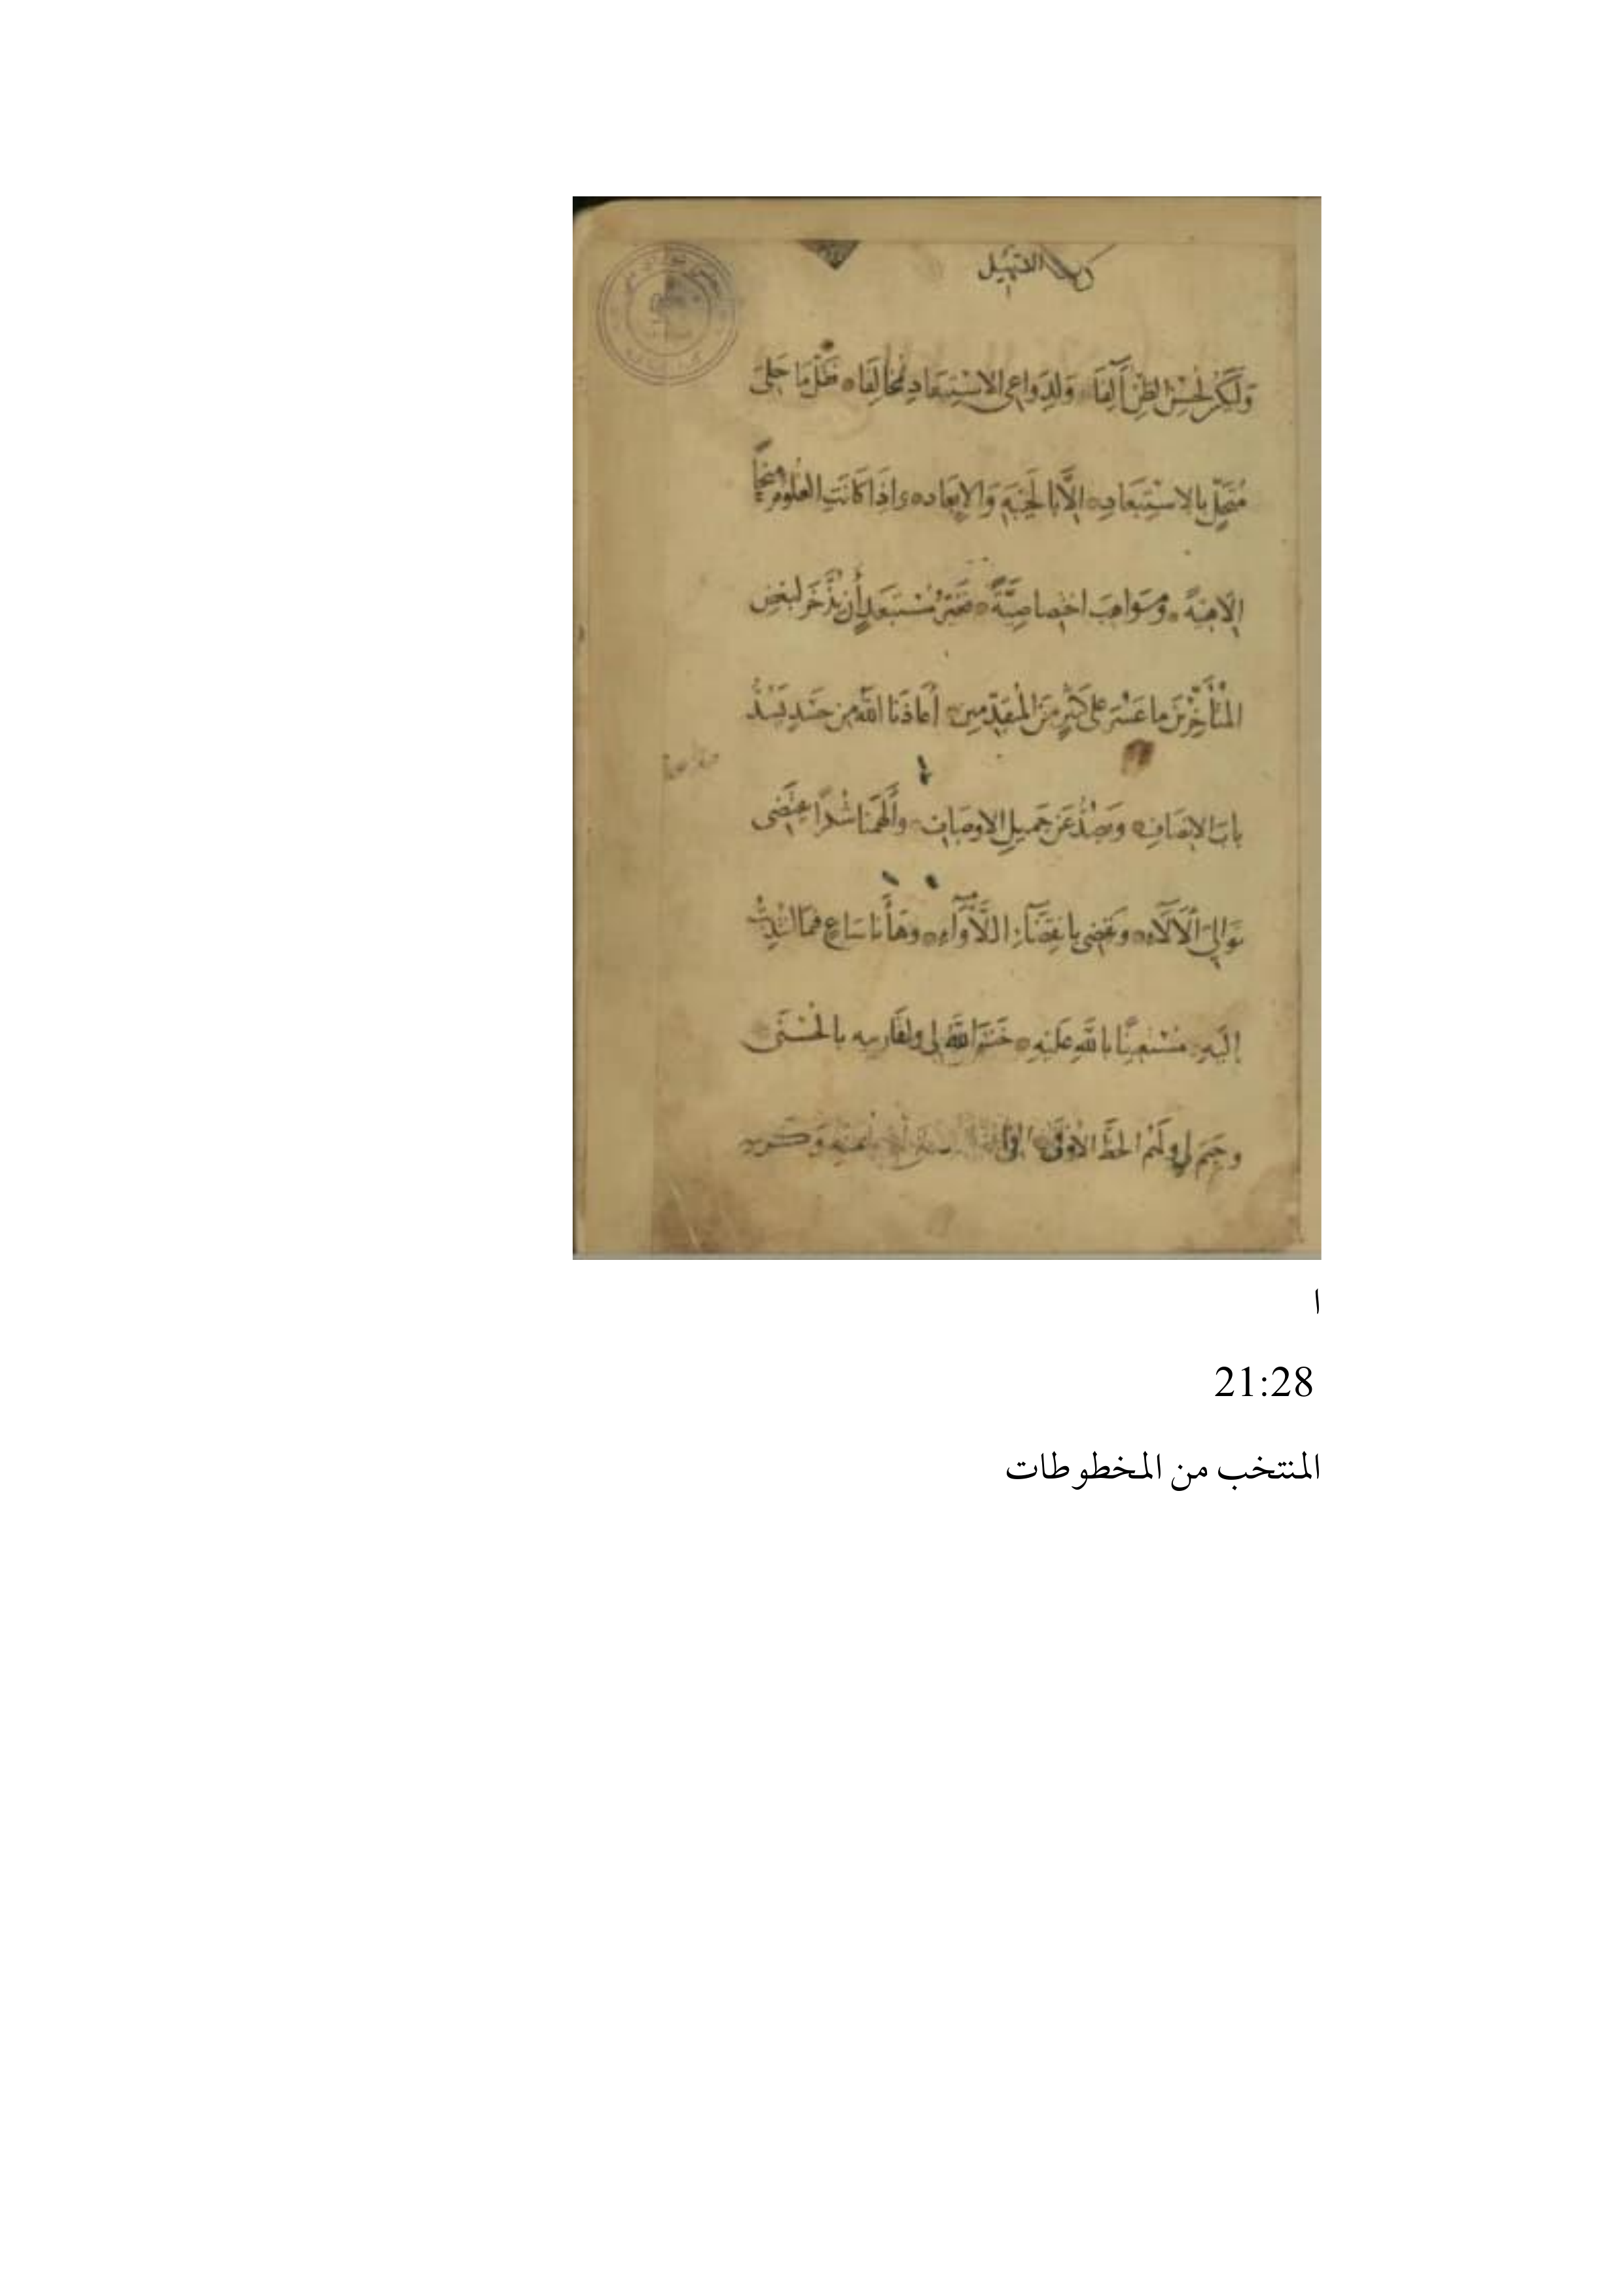 كتاب التسهيل
وَلْيَكُنْ لِحُسْنِ الظَّنِّ آلِفًا وَلِدَوَاعِي الاسْتِبْعَادِ مُخَالِفًا فَقَلَّ مَا حَلِيَ
مُتَحَلٍّ بِالاسْتِبْعَادِ إِلَّا بِالْخَيْبَةِ وَالإِبْعَادِ وَإِذَا كَانَتِ الْعُلُومُ مِنَحًا
إلاهِيَّةً وَمَوَاهِبَ اخْتِصَاصِيَّةً فَغَيْرُ مُسْتَبْعَدٍ أَنْ يُدَّخَرَ لِبَعْضِ
الْمُتَأَخِّرِينَ مَا عَسُرَ عَلَى كَثِيرٍ مِنَ الْمُتَقَدِّمِينَ أَعَاذَنَا اللَّهُ مِنْ حَسَدٍ يَسُدُّ
بَابَ الإِنْصَافِ وَيَصُدُّ عَنْ جَمِيلِ الأَوْصَافِ وَأَلْهَمَنَا شُكْرًا يَقْتَضِي
تَوَالِيَ الْآلَاءِ وَيَقْضِي بِانْقِضَاءِ اللَّأْوَاءِ وَهَا أَنَا سَاعٍ فِيمَا انْتُدِبْتُ
إِلَيْهِ مُسْتَعِينًا بِاللَّهِ عَلَيْهِ خَتَمَ اللَّهُ لِي وَلِقَارِئِيهِ بِالْحُسْنَى
وَحَتَمَ لِي وَلَهُمُ الْحَظَّ الْأَوْفَى بمنه وكرمه
ا
21:28
المنتخب من المخطوطات